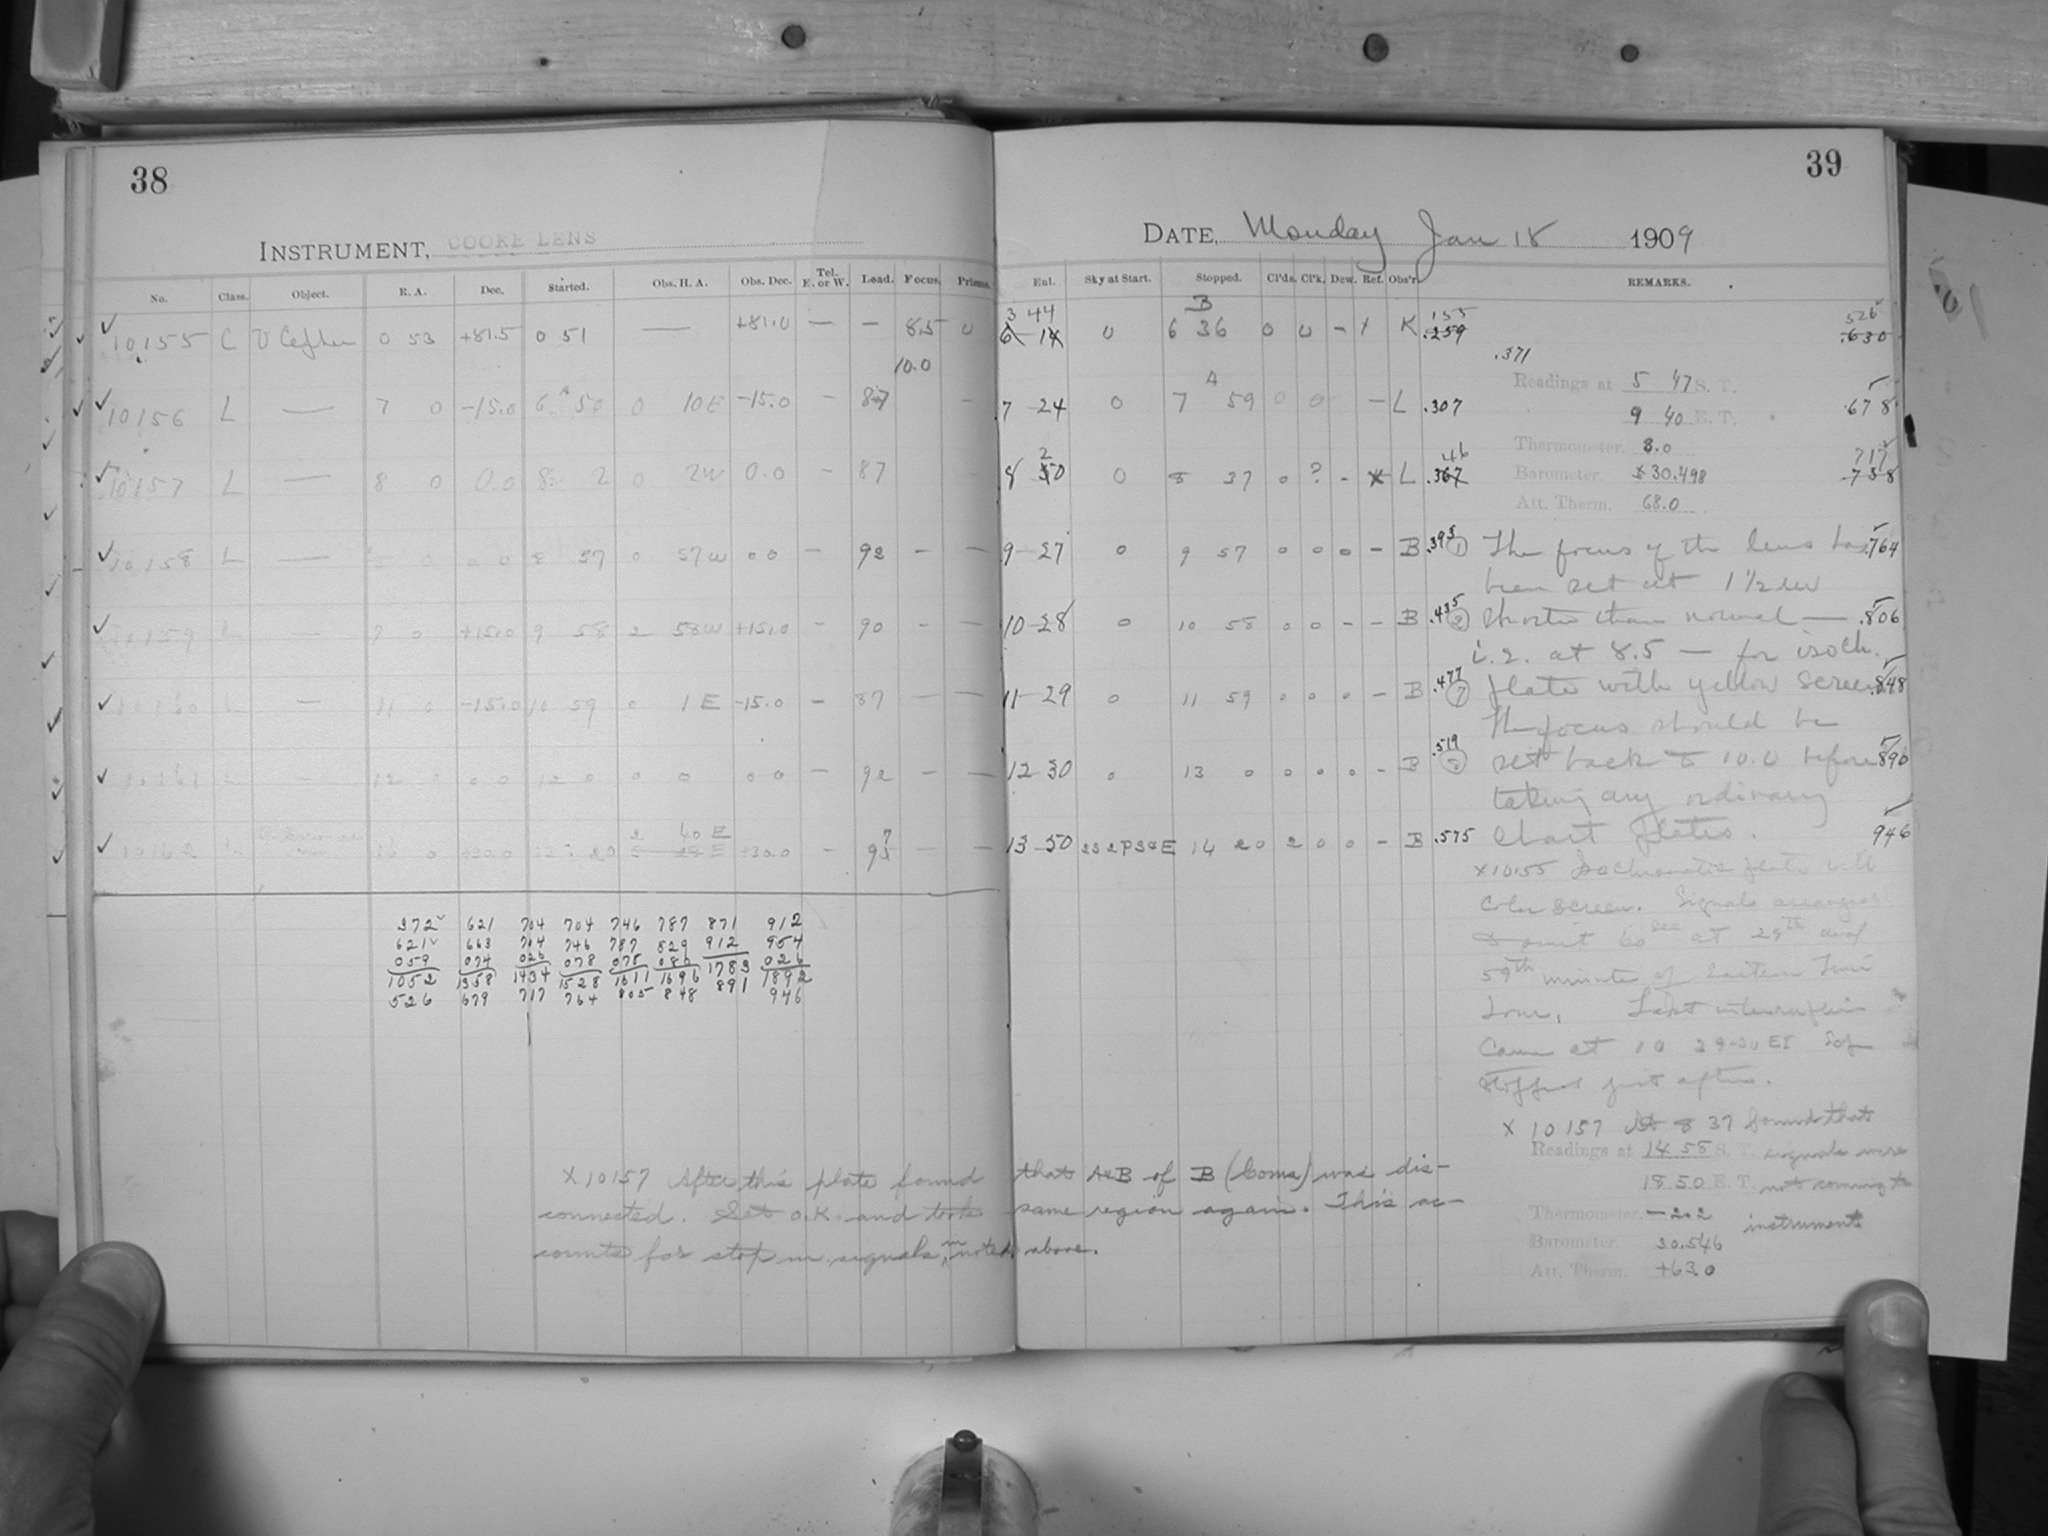 38
INSTRUMENT, COOKE LENS
No. Class. Object. R. A. Dec. Started. Obs. H. A. Obs. Dec. Tel. E. or W. Load. Focus. Prisms.
10155 C U Cephei 0 53 +81.5 0 51 — +81.0 — — 8.5 0
10.0
10156 L — 7 0 -15.0 6 50 0 10 E -15.0 — 87 —
10157 L — 8 0 0.0 8 2 0 2 W 0.0 — 87 —
10158 L — 0 0 0 8 57 0 57 W 0 0 — 92 — —
10159 L 7 0 +15.0 9 58 2 58 W +15.0 — 90 — —
10160 L — 11 0 -15.0 10 59 0 1 E -15.0 — 87 — —
10161 L — 12 0 0 0 12 0 0 0 0 0 — 92 — —
2 40 E
10162 16 0 +30.0 20 +30.0 — 97 — —
372 621 704 704 746 787 871 912
621 663 704 746 787 829 912 954
059 074 026 078 078 080 026
1052 1358 1434 1528 1611 1696 1783 1892
526 679 717 764 805 848 891 946
X 10157 After this plate found that A&B of B (Coms) was dis-
connected. Set O.K. and took same region again. This ac-
counts for stop in signals, noted above.
39
DATE, Monday Jan 18 1909
Ent. Sky at Start. Stopped. Cl'ds. Cl'k. Dew. Ref. Obs'r. REMARKS.
3 44 B 155 526
6 14 0 6 36 0 0 - x K .259 .630
.371
Readings at 5 47 S. T.
7 24 0 7 59 0 0 — L .307 .678
9 40 E. T.
Thermometer. 8.0
8 2 0 8 37 0 ? - x L .367 46 717 .758
Barometer. 30.498
Att. Therm. 68.0
9-27 0 9 57 0 0 0 - B .393 (1) The focus of the lens has .764
been set at 1 1/2 div
10-28 0 10 58 0 0 - - B .435 (2) shorter than normal — .806
i.e. at 8.5 — for isoch.
11-29 0 11 59 0 0 0 - B .477 plate with yellow screen .848
The focus should be
12-30 0 13 0 0 0 0 - B .519 set back to 10.0 before 890
taking any ordinary
13-50 14 20 2 0 0 - B .575 chart plates. 946
x 10155 Isochromatic plate with
Color screen. Signals arranged
to omit 60 sec at 29th and
59th minute of Eastern Time
hour. Last interruption
Came at 10 29-30 ET
stopped just after.
X 10157 At 8 37 found that
Readings at 14 55 S. T. signals were
18 50 E. T. not coming to
Thermometer. -2.2 instrument
Barometer. 30.546
Att. Therm. +63.0